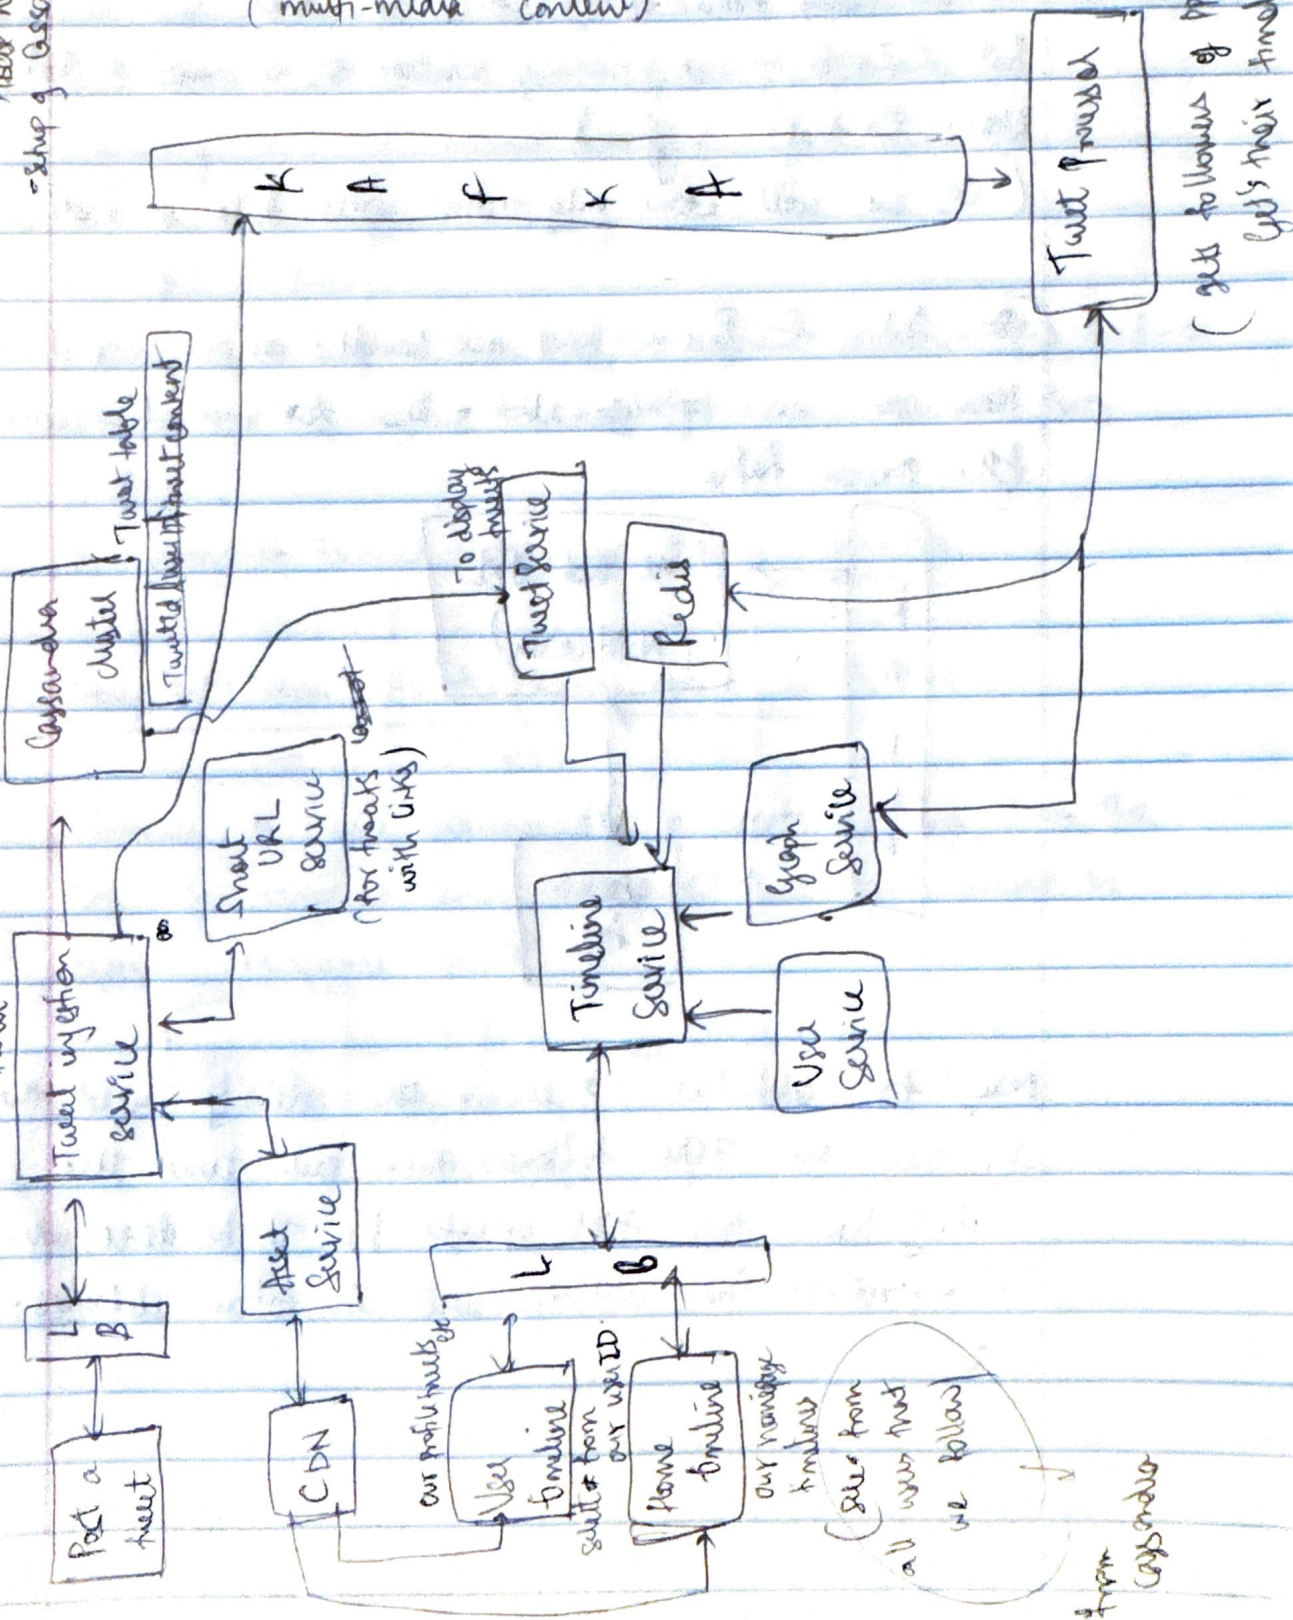 - Setup of
(multi-media content)
Post a
tweet
L
B
Tweet ingestion
service
Cassandra
cluster
Tweet table
K A F K A
Tweet Processor
(gets followers of
Get's their
Short
URL
service
(for tweets
with links)
Asset
Service
CDN
To display
tweets
Tweet Service
Redis
Timeline
Service
Graph
Service
User
Service
L
B
our profile tweets etc.
User
timeline
our user ID.
Home
timeline
our homepage
timelines
(sees from
all users that
we follow)
from
Cassandra